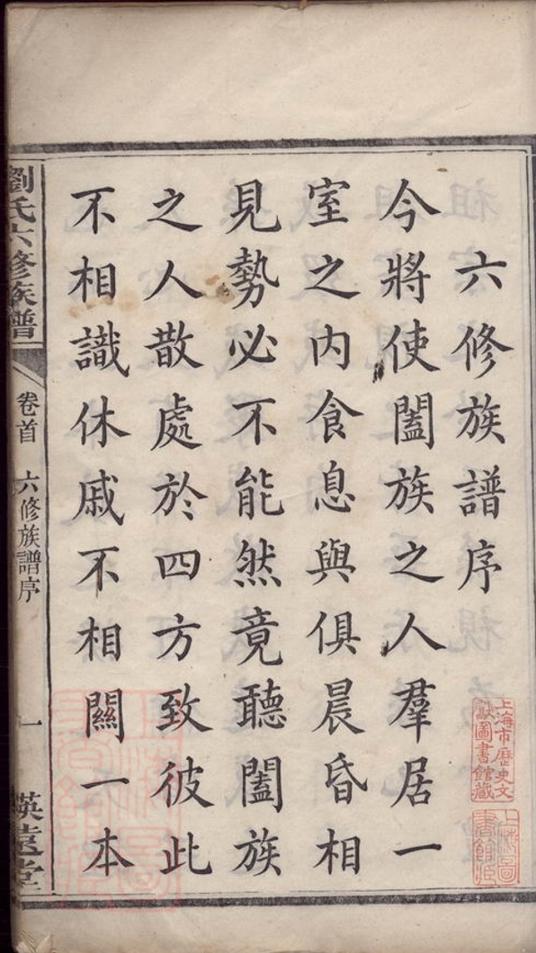 六修族譜序
今將使闔族之人羣居一
室之内食息與俱晨昏相
見勢必不能然竟聽闔族
之人散處於四方致彼此
不相識休戚不相關一本
劉氏六修族譜
卷首
六修族譜序
一
上海市歷史文
獻圖書館藏